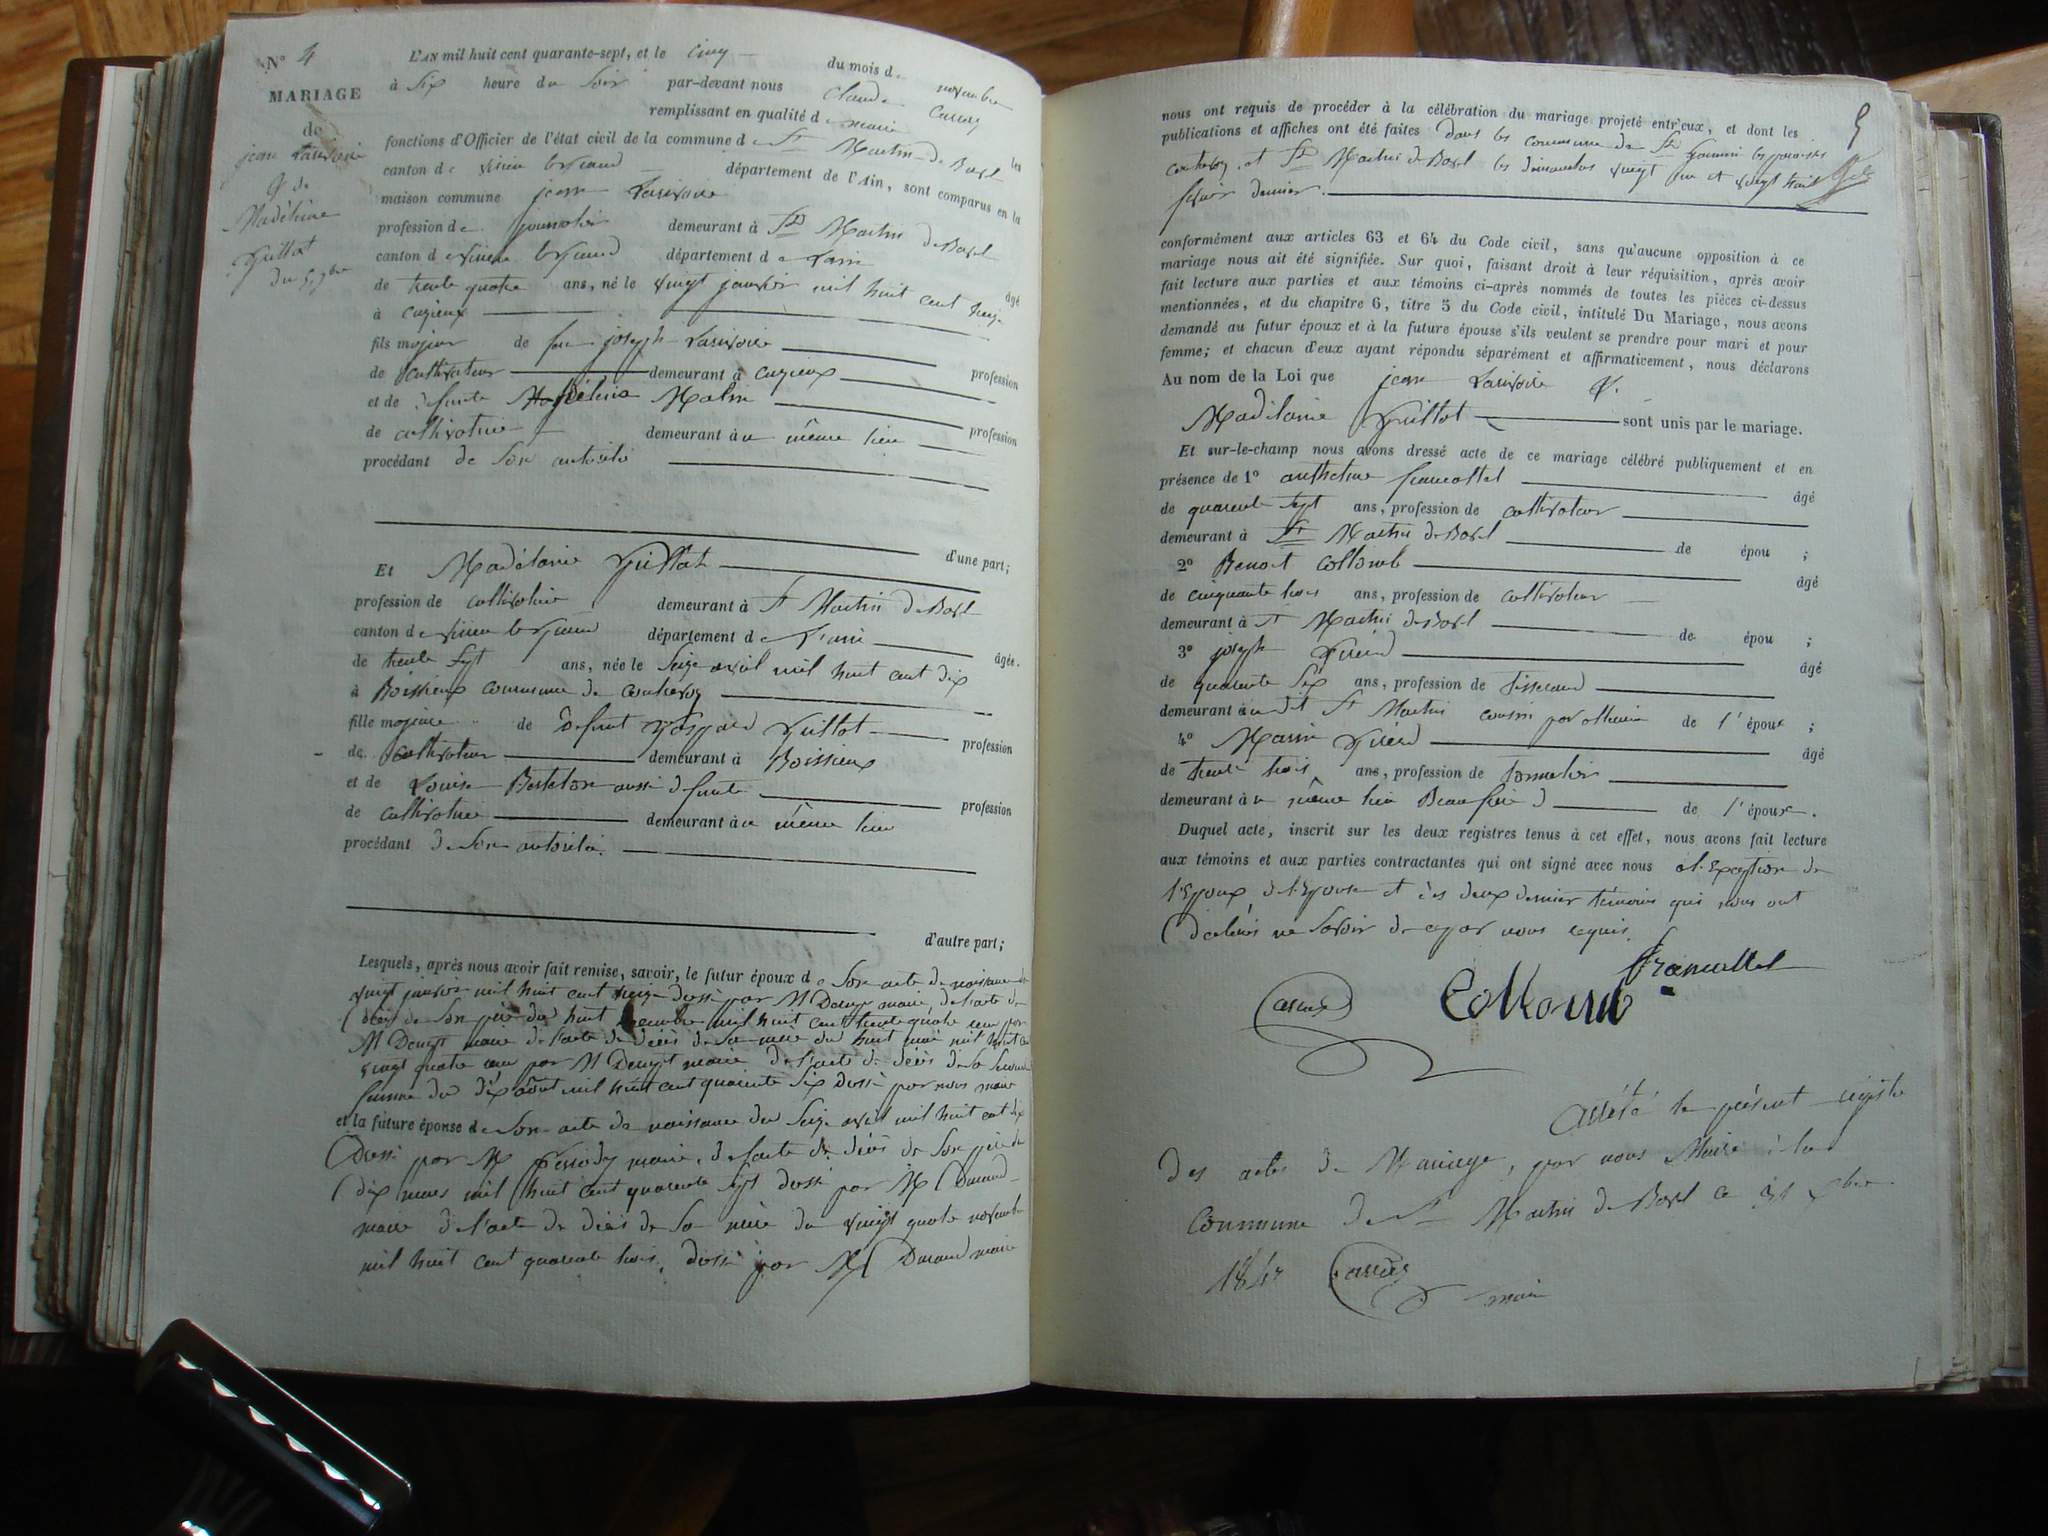 N° 4
MARIAGE
de
jean Larivoire
& de
Madélaine
Guillot
du 5 9bre
L'AN mil huit cent quarante-sept, et le cinq du mois de novembre
à Six heure du Soir par-devant nous Claude
remplissant en qualité de maire les
fonctions d'Officier de l'état civil de la commune de St Martin de Bavel
canton de virieu le grand département de l'Ain, sont comparus en la
maison commune jean Larivoire
profession de journalier demeurant à St Martin de Bavel
canton de virieu le grand département de Lain âgé
de trente quatre ans, né le vingt janvier mil huit cent treize
à cuzieux
fils majeur de feu joseph Larivoire profession
de cultivateur demeurant à cuzieux
et de defunte Madélaine profession
de cultivatrice demeurant au même lieu
procédant de Son autorité
d'une part;
Et Madélaine Guillot
profession de cultivatrice demeurant à St Martin de Bavel
canton de virieu le grand département de l'ain âgée
de trente Sept ans, née le Seize avril mil huit cent dix
à Boissieux commune de contrevoz
fille majeure de defunt Gaspard Guillot profession
de cultivateur demeurant à Boissieux
et de Louise Berthelon aussi defunte profession
de cultivatrice demeurant au même lieu
procédant de Son autorité.
d'autre part;
Lesquels, après nous avoir fait remise, savoir, le futur époux de Son acte de naissance du
vingt janvier mil huit cent treize dressé par M maire, de l'acte de
décès de Son père du huit mil huit cent trente quatre reçu par
M maire de l'acte de décès de Sa mère du huit mai mil huit cent
vingt quatre reçu par M maire de l'acte de décès de Sa Seconde
femme du dix août mil huit cent quarante Six dressé par nous maire
et la future épouse de Son acte de naissance du Seize avril mil huit cent dix
dressé par M maire, de l'acte de décès de Son père du
dix mars mil huit cent quarante Sept dressé par M Durand
maire de l'acte de décès de Sa mère du vingt quatre novembre
mil huit cent quarante trois, dressé par M Durand maire
5
nous ont requis de procéder à la célébration du mariage projeté entr'eux, et dont les
publications et affiches ont été faites dans les commune de St
contrevoz, et St Martin de Bavel les dimanches vingt un et vingt huit
février dernier.
conformément aux articles 63 et 64 du Code civil, sans qu'aucune opposition à ce
mariage nous ait été signifiée. Sur quoi, faisant droit à leur réquisition, après avoir
fait lecture aux parties et aux témoins ci-après nommés de toutes les pièces ci-dessus
mentionnées, et du chapitre 6, titre 5 du Code civil, intitulé Du Mariage, nous avons
demandé au futur époux et à la future épouse s'ils veulent se prendre pour mari et pour
femme; et chacun d'eux ayant répondu séparément et affirmativement, nous déclarons
Au nom de la Loi que jean Larivoire &
Madélaine Guillot sont unis par le mariage.
Et sur-le-champ nous avons dressé acte de ce mariage célébré publiquement et en
présence de 1° anthelme francottet âgé
de quarante Sept ans, profession de cultivateur
demeurant à St Martin de Bavel de épou ;
2° Benoit Collomb âgé
de cinquante trois ans, profession de cultivateur
demeurant à St Martin de Bavel de épou ;
3° joseph âgé
de quarante Six ans, profession de tisserand
demeurant audit St Martin cousin par alliance de l'époux ;
4° Marin âgé
de trente trois ans, profession de tonnelier
demeurant au même lieu Beau frère de l'époux.
Duquel acte, inscrit sur les deux registres tenus à cet effet, nous avons fait lecture
aux témoins et aux parties contractantes qui ont signé avec nous à l'Exception de
l'Epoux de l'Epouse et des deux dernier témoins qui nous ont
déclarés ne Savoir de ce par nous requis.
francottet
Collomb
Arrêté le présent registre
des actes de Mariage, par nous Maire de la
commune de St Martin de Bavel ce 31 Xbre
1847
maire